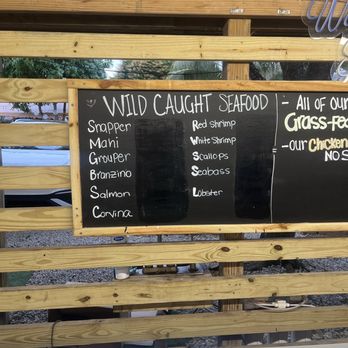 WILD CAUGHT SEAFOOD
Snapper
Mahi
Grouper
Branzino
Salmon
Corvina
Red shrimp
White shrimp
Scallops
Seabass
Lobster
- All of our
Grass-fed
- our Chicken
NO S